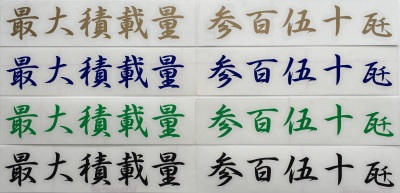 最大積載量 参百伍十瓩
最大積載量 参百伍十瓩
最大積載量 参百伍十瓩
最大積載量 参百伍十瓩